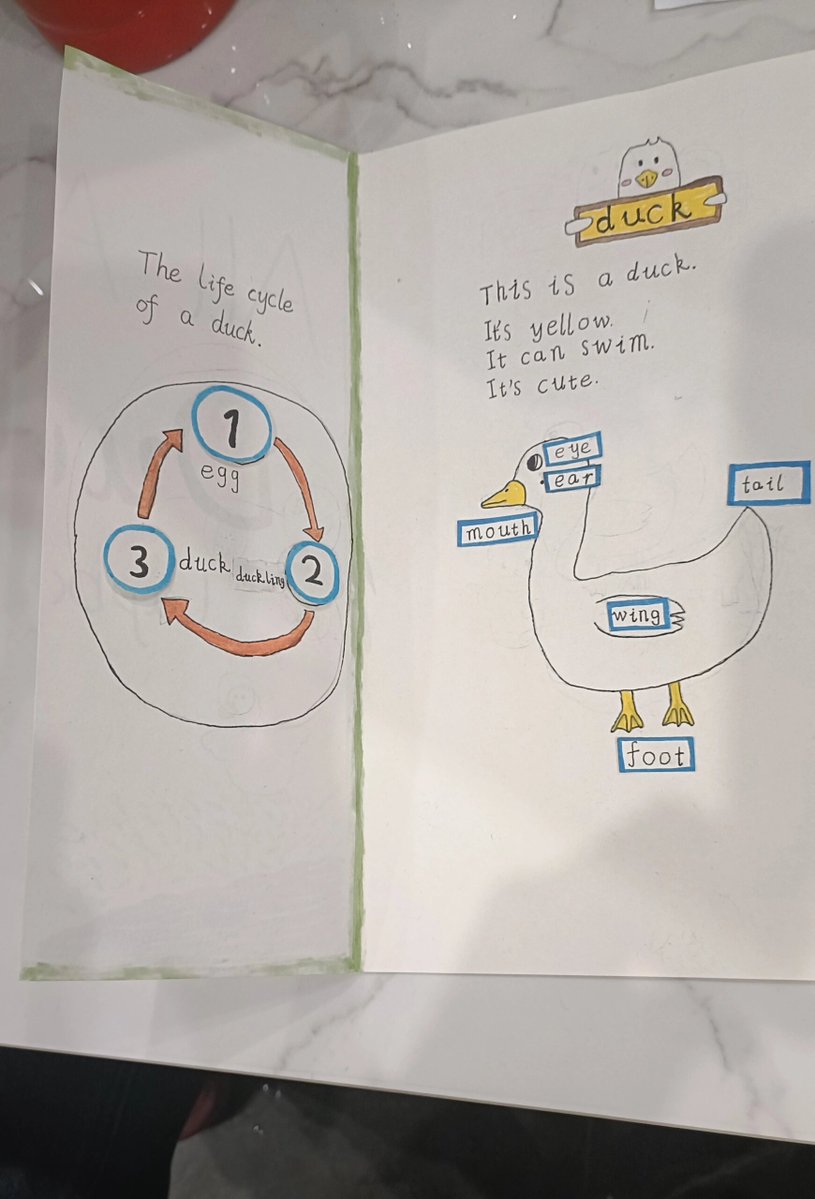 The life cycle
of a duck.
1
egg
2
duckling
3
duck
duck
This is a duck.
It's yellow.
It can swim.
It's cute.
eye
ear
mouth
tail
wing
foot